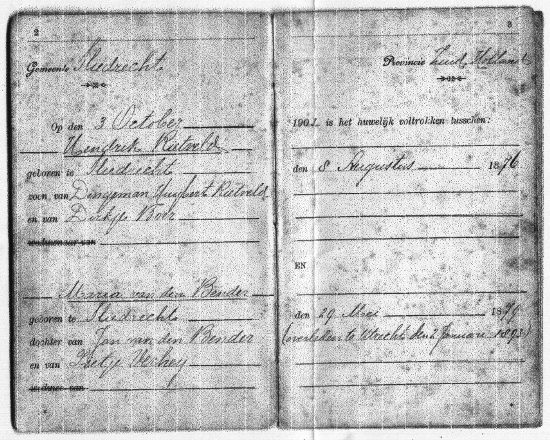 2
Gemeente Sliedrecht.
Op den 3 October
Hendrik Rietveld
geboren te Sliedrecht
zoon van Dingeman Huijbert Rietveld
en van Dirkje Boer
weduwnaar van
Maria van den Bender
geboren te Sliedrecht
dochter van Jan van den Bender
en van Verhey
weduwe van
3
Provincie Zuid Holland
1901 is het huwelijk voltrokken tusschen:
den 8 Augustus 1876
EN
den 29 Mei 1879
(overleden te Utrecht den 2 Januari